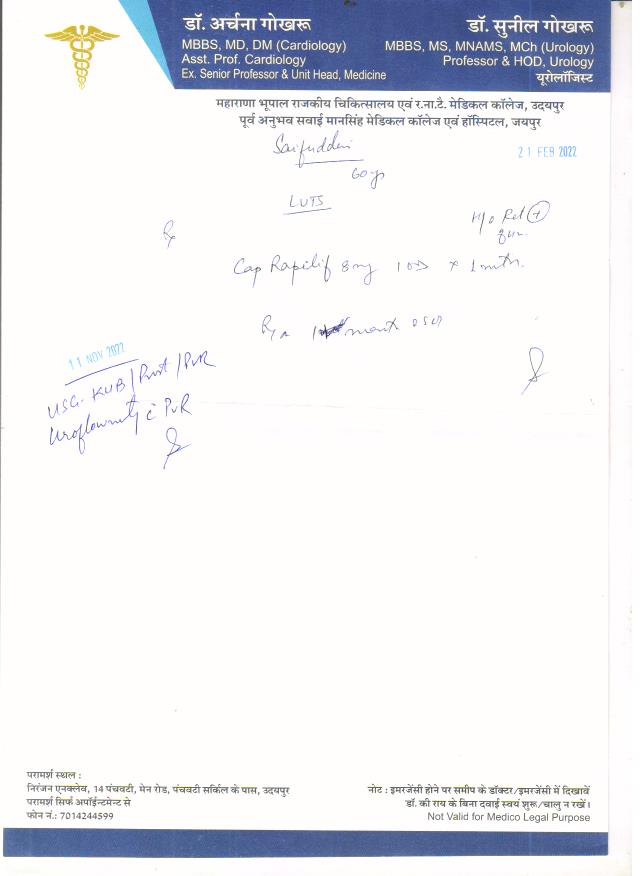 डॉ. अर्चना गोखरू
MBBS, MD, DM (Cardiology)
Asst. Prof. Cardiology
Ex. Senior Professor & Unit Head, Medicine
डॉ. सुनील गोखरू
MBBS, MS, MNAMS, MCh (Urology)
Professor & HOD, Urology
यूरोलॉजिस्ट
महाराणा भूपाल राजकीय चिकित्सालय एवं र.ना.टै. मेडिकल कॉलेज, उदयपुर
पूर्व अनुभव सवाई मानसिंह मेडिकल कॉलेज एवं हॉस्पिटल, जयपुर
Saifuddin
21 FEB 2022
60 yr
LUTS
H/o Ret +
Rx
Cap Rapilif 8mg 1 OD x 1 mth.
11 NOV 2022
USG. KUB/Prost/PVR
Uroflowmetry c̄ PVR
परामर्श स्थल :
निरंजन एनक्लेव, 14 पंचवटी, मेन रोड, पंचवटी सर्किल के पास, उदयपुर
परामर्श सिर्फ अपॉईन्टमेन्ट से
फोन नं.: 7014244599
नोट : इमरजेंसी होने पर समीप के डॉक्टर/इमरजेंसी में दिखावें
डॉ. की राय के बिना दवाई स्वयं शुरू/चालु न रखें।
Not Valid for Medico Legal Purpose